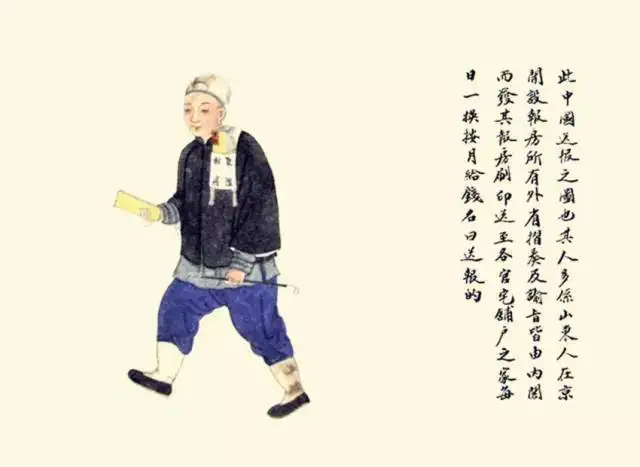 此中國送报之圖也其人多係山東人在京
開設報房所有外省摺奏及諭旨皆由内閣
而發其报房刷印送至各官宅舖户之家每
日一换按月給錢名曰送報的